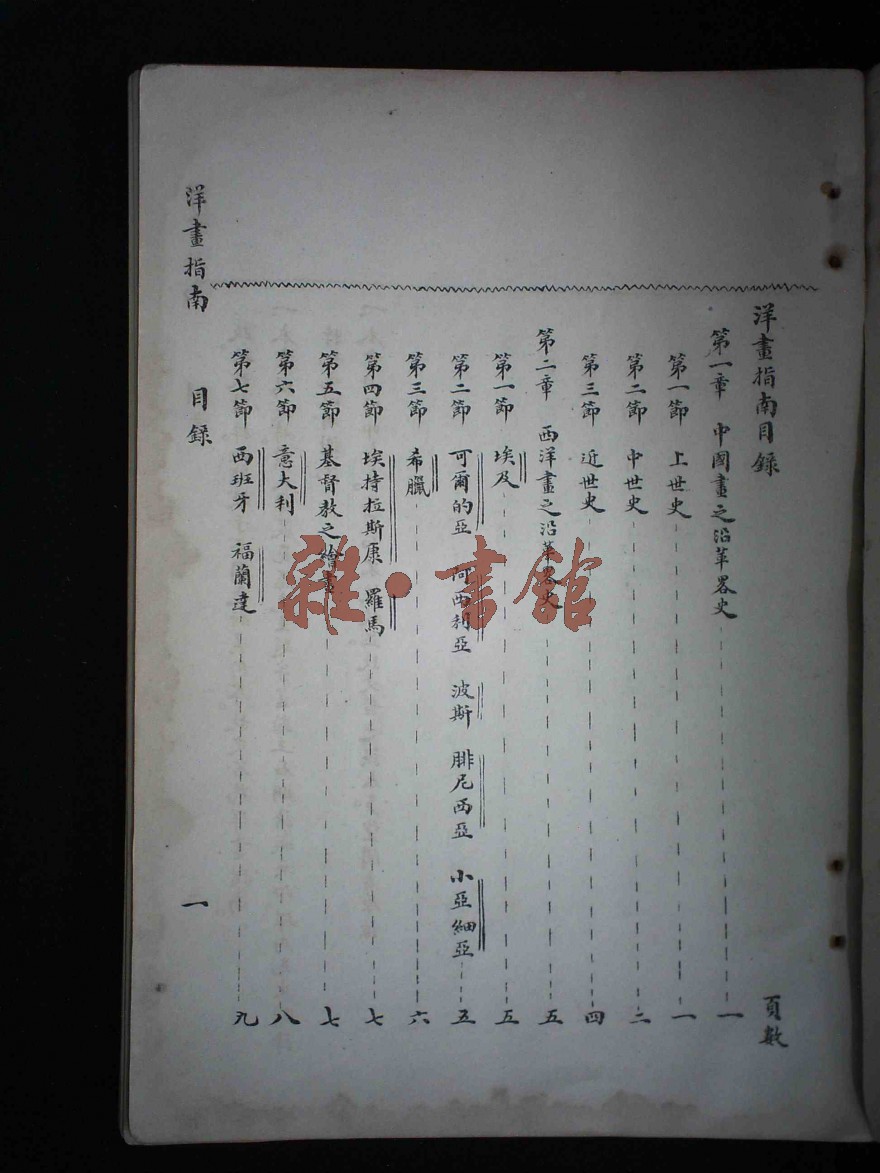 洋畫指南目錄 頁數
第一章 中國畫之沿革畧史 一
第一節 上世史 一
第二節 中世史 二
第三節 近世史 四
第二章 西洋畫之沿革畧史 五
第一節 埃及 五
第二節 可爾的亞 阿西利亞 波斯 腓尼西亞 小亞細亞 五
第三節 希臘 六
第四節 埃持拉斯康 羅馬 七
第五節 基督教之繪畫 七
第六節 意大利 八
第七節 西班牙 福蘭達 九
洋畫指南 目錄 一
雜·書館